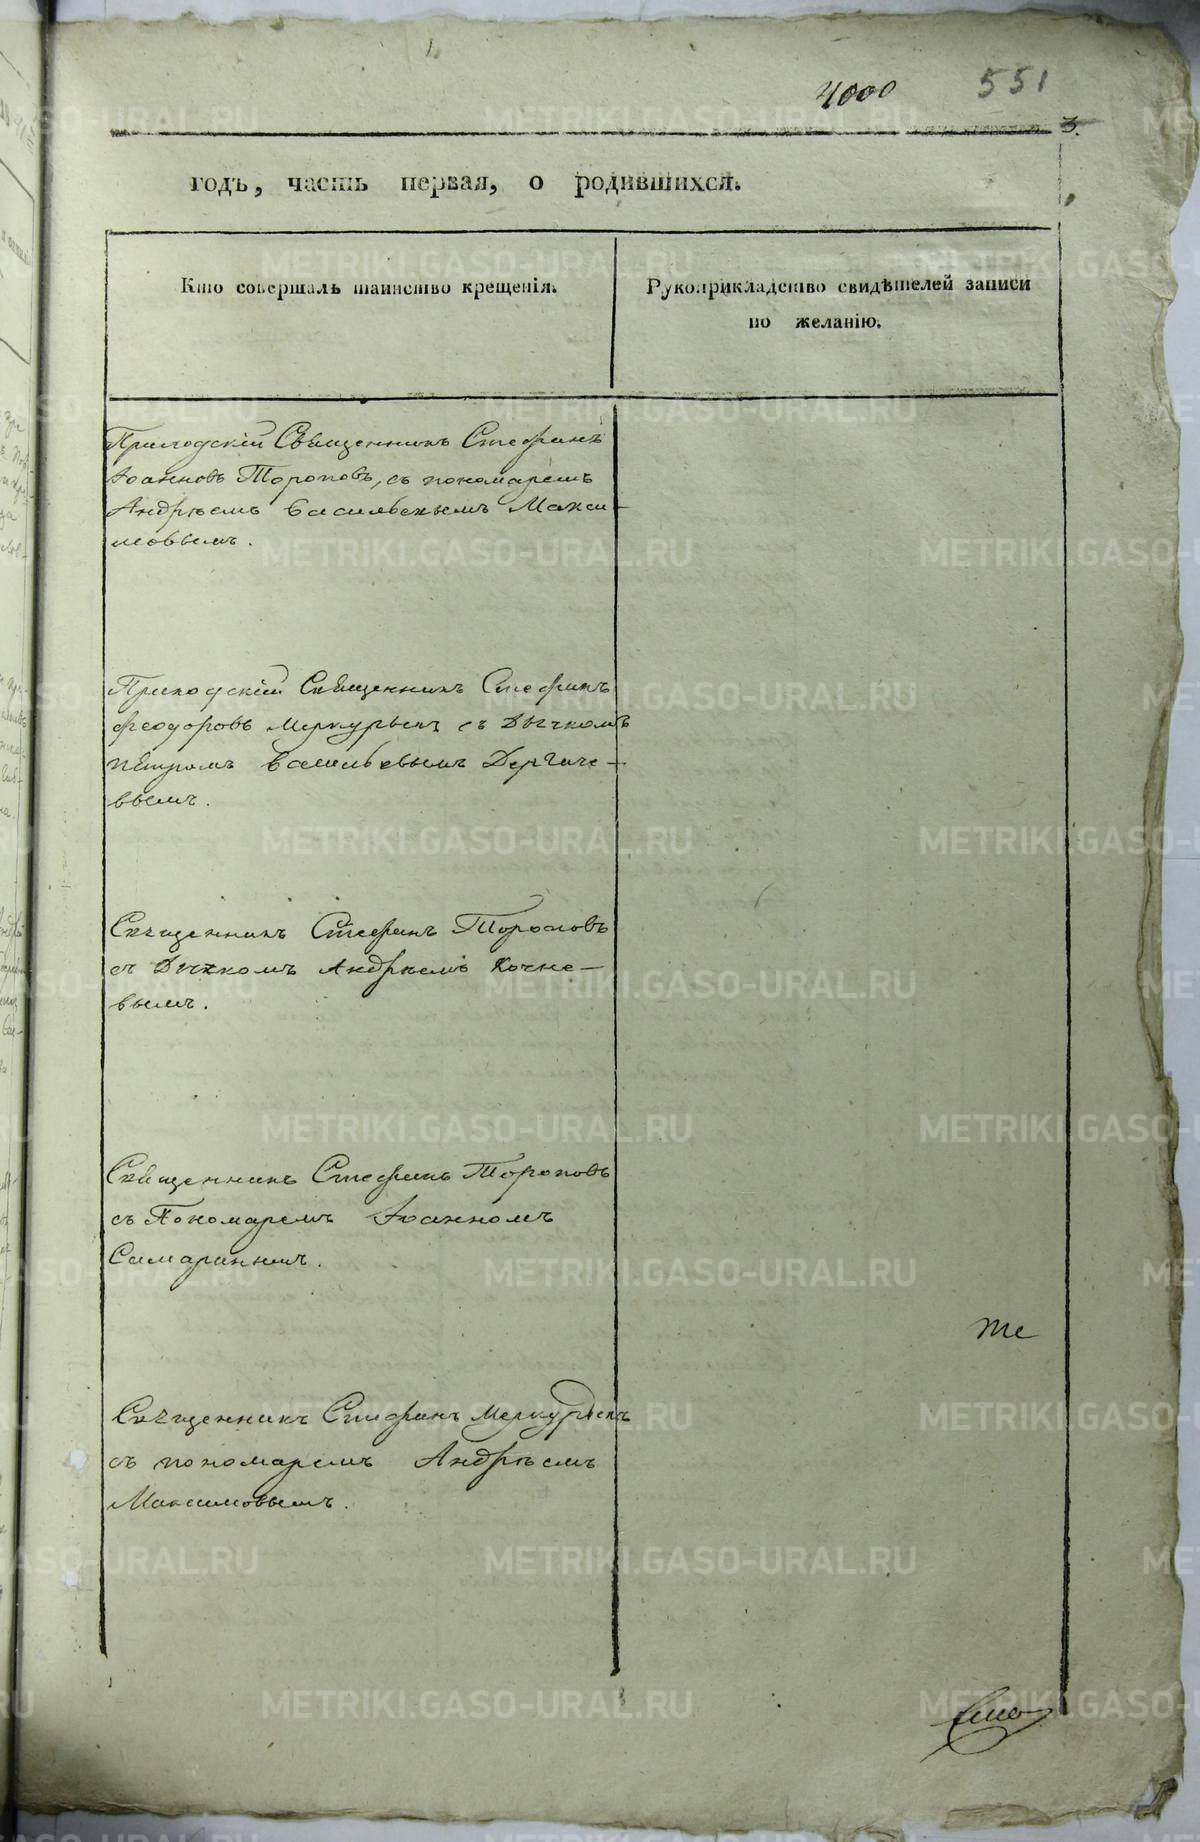 4000 551
3.
годъ, часть первая, о родившихся.
Кто совершалъ таинство крещенія.
Рукоприкладство свидѣтелей записи
по желанію.
Приходскій Священникъ Стефанъ
Іоанновъ Тороповъ, съ пономаремъ
Андрѣемъ Васильевымъ Макси-
мовымъ.
Приходскій Священникъ Стефанъ
Феодоровъ Меркурьевъ съ Дьячкомъ
Петромъ Васильевымъ Дергаче-
вымъ.
Священникъ Стефанъ Тороповъ
съ Дьячкомъ Андрѣемъ Кочне-
вымъ.
Священникъ Стефанъ Тороповъ
съ Пономаремъ Іоанномъ
Самаринымъ.
те
Священникъ Стефанъ Меркурьевъ
съ пономаремъ Андрѣемъ
Максимовымъ.
METRIKI.GASO-URAL.RU